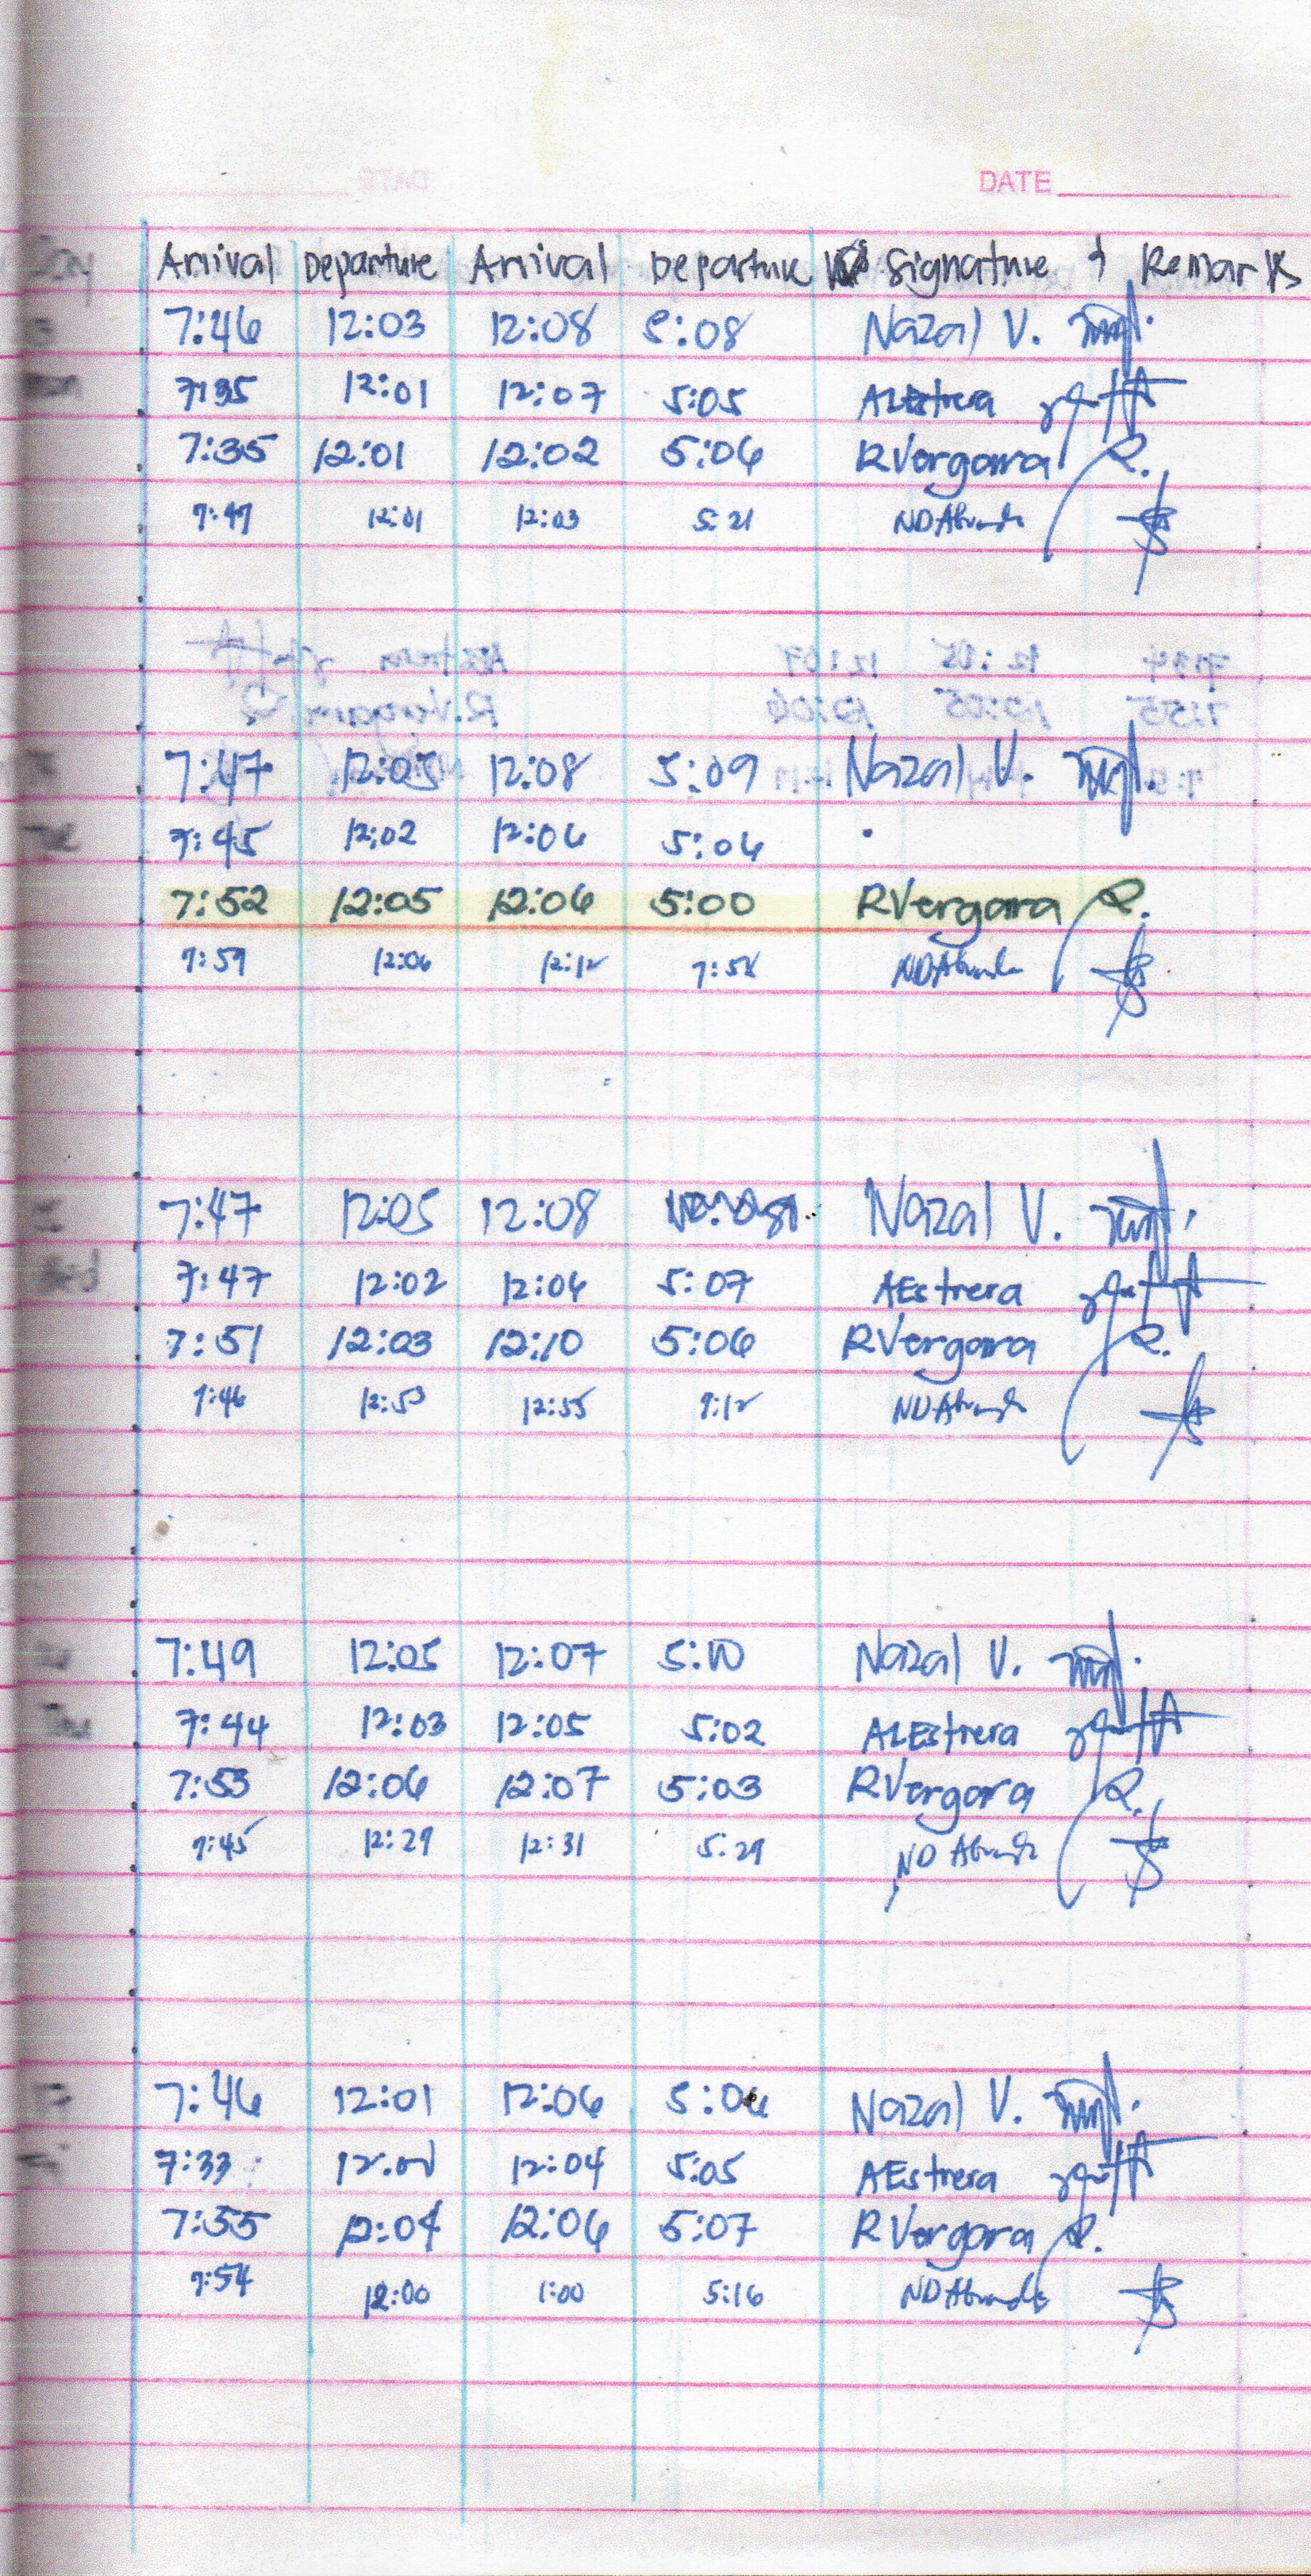 DATE
Arrival Departure Arrival Departure Signature & Remarks
7:46 12:03 12:08 5:08 Nazal V.
7:35 12:01 12:07 5:05 ALEstrera
7:35 12:01 12:02 5:06 RVergara R.
7:47 12:01 12:03 5:21 NDAbunda
7:47 12:05 12:08 5:09 Nazal V.
7:45 12:02 12:06 5:06
7:52 12:05 12:06 5:00 RVergara R.
7:59 12:06 12:12 7:58 NDAbunda
7:47 12:05 12:08 Nazal V.
7:47 12:02 12:06 5:07 AEstrera
7:51 12:03 12:10 5:06 RVergara R.
7:46 12:53 12:55 9:12 NDAbunda
7:49 12:05 12:07 5:10 Nazal V.
7:44 12:03 12:05 5:02 ALEstrera
7:53 12:06 12:07 5:03 RVergara R.
7:45 12:29 12:31 5:29 ND Abunda
7:46 12:01 12:06 5:06 Nazal V.
7:33 12:04 5:05 AEstrera
7:55 12:04 12:06 5:07 RVergara R.
7:54 12:00 1:00 5:16 NDAbunda